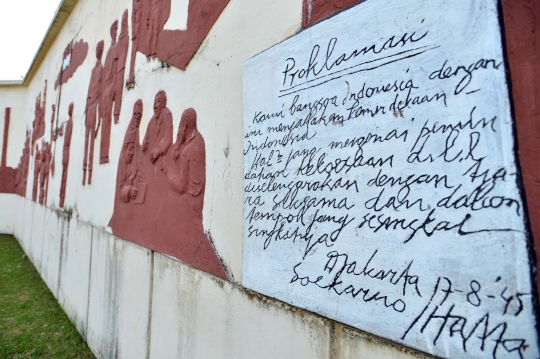 Proklamasi
Kami bangsa Indonesia dengan
ini menjatakan kemerdekaan
Indonesia
Hal² jang mengenai pemin
dahan kekoeasaan d.l.l
diselengarakan dengan tja
ra seksama dan dalam
tempoh jang sesingkat
singkatnja
Djakarta 17-8-'45
Soekarno/Hatta